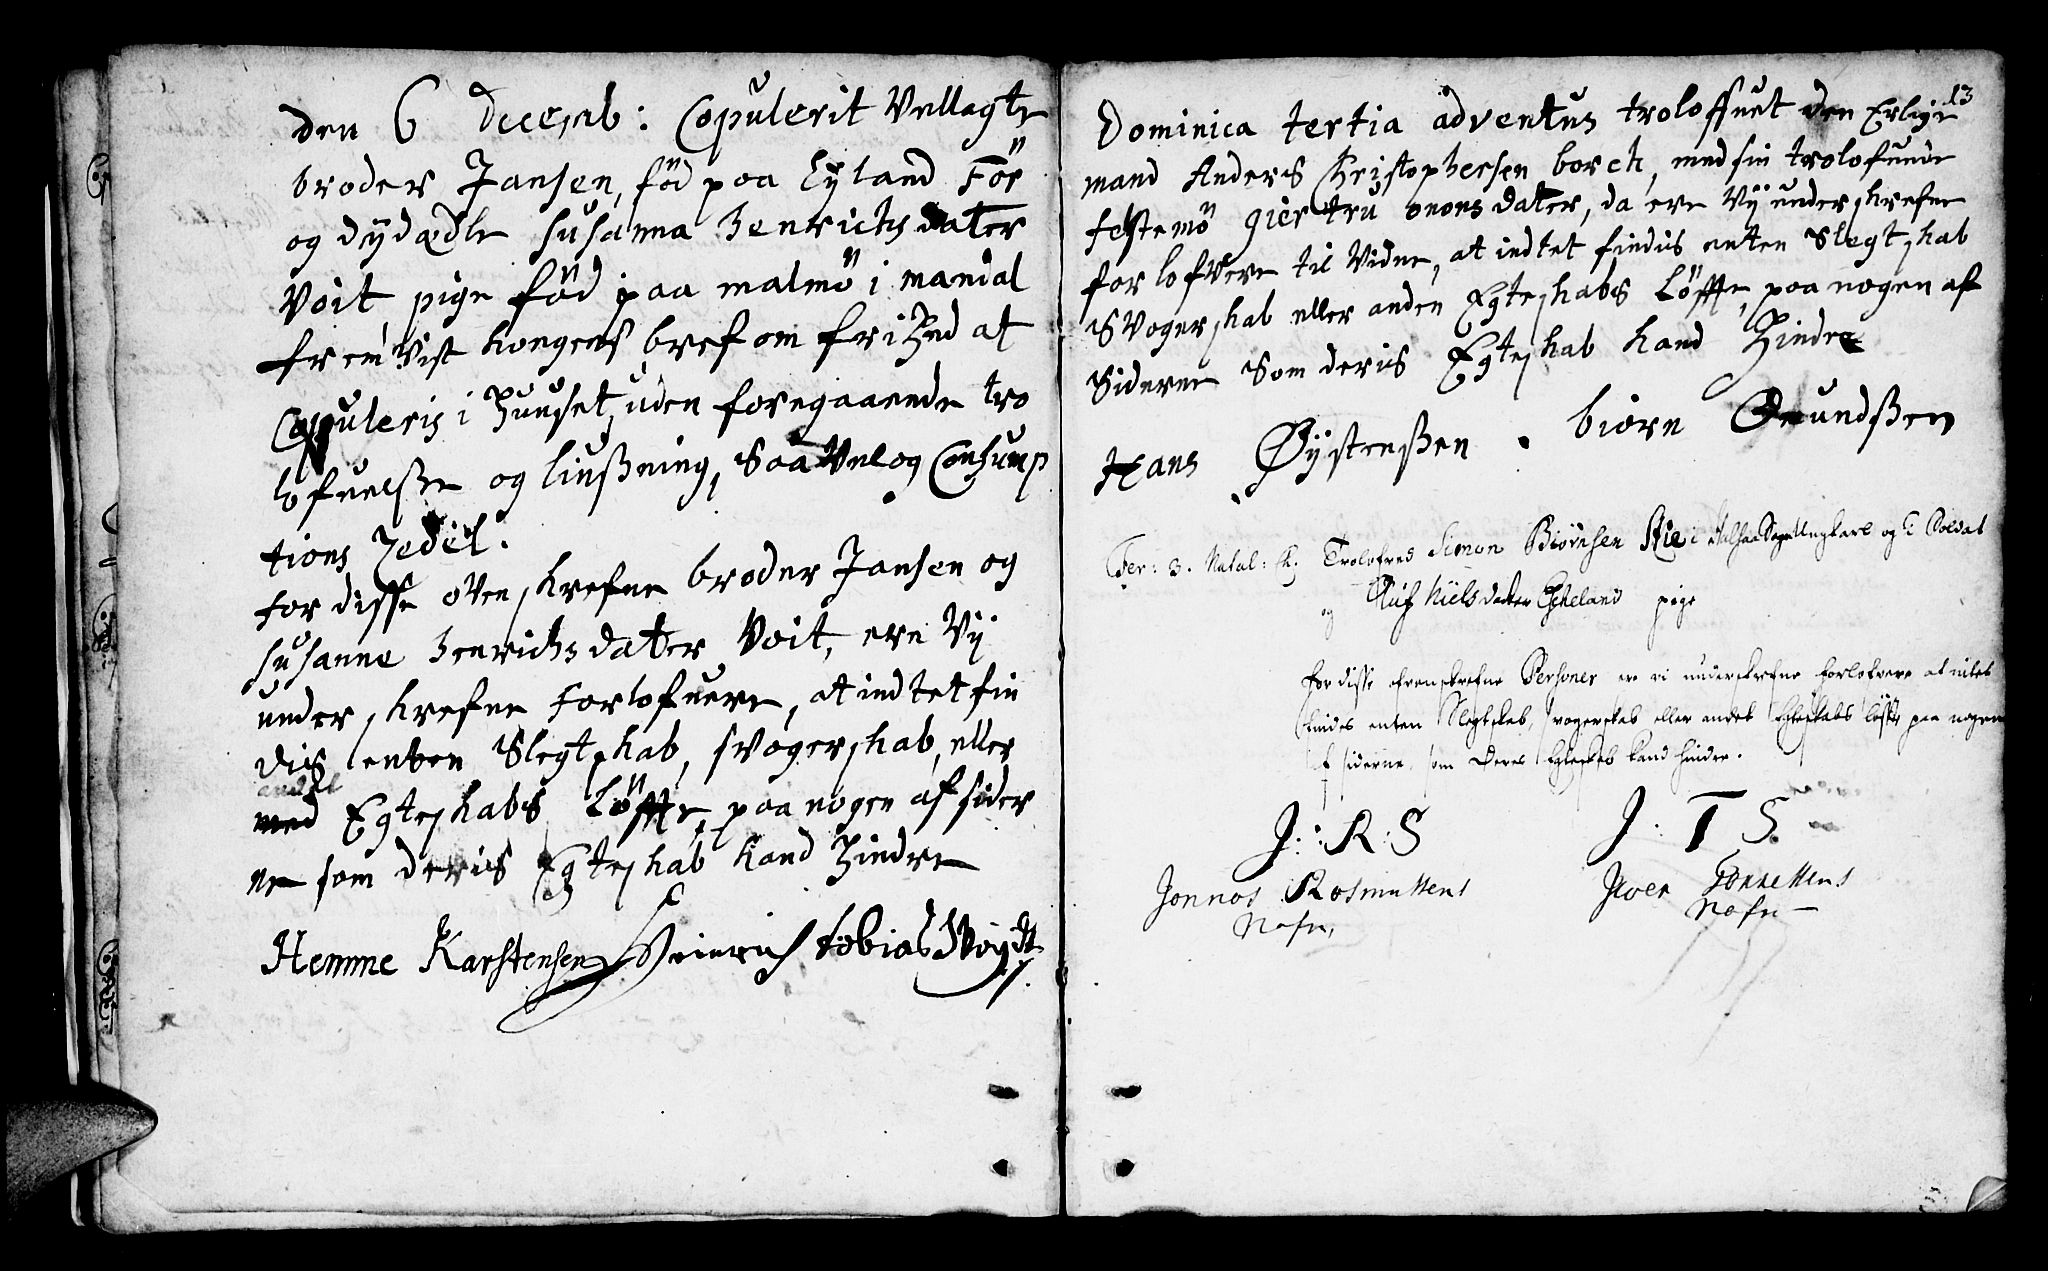 den 6 Decemb: Copulerit Vellagte
broder Jansen, föd paa Eyland För
og dydædle susanna Henrichs dater
Voit pige föd paa malmö i mandal
frem Vist kongens bref om frihed at
Copuleris i Huuset, uden foregaaende tro
lofuelße og liußning, Saa Vel og Consump
tions Zedel.
for disse oven skrefne broder Jansen og
susanne Henrichs dater Voit, ere Vij
under skrefne Forlofuere, at indtet fin
dis enten Slegtskab, svogerskab, eller
andet
med Egteskabs Löffte, paa nogen af sider
ne som deris Egteskab kand Hindre
Hemme Karstensen Heinrich tobias Voydt
13
Dominica tertia adventus troloffuet den Erlige
mand Anders Christophersen borch, med sin trolofuede
festemö giertru onons dater, da ere Vij under skrefne
forlofVere til Vidne, at indtet findis enten Slegtskab
SVogerskab eller anden Egteskabs Löffte, paa nogen af
Siderne Som deris Egteskab kand Hindre
Hans Øÿstenßen . biörn Omundßen
Fer: 3. Natal: Trolofved Simon Biörnsen Ungkarl og Soldat
og Niels datter Eskeland pige
for disse ofvenskrefne Personer ere vi underskrefne forlofvere at intet
findes enten Slegtskab, svogerskab eller andet Egteskabs löfte paa nogen
af siderne, som deres Egteskab kand hindre.
J: R: S J: T S.
Jonnos Rosmussens Jver Tönnessens
Nafn, Nafn